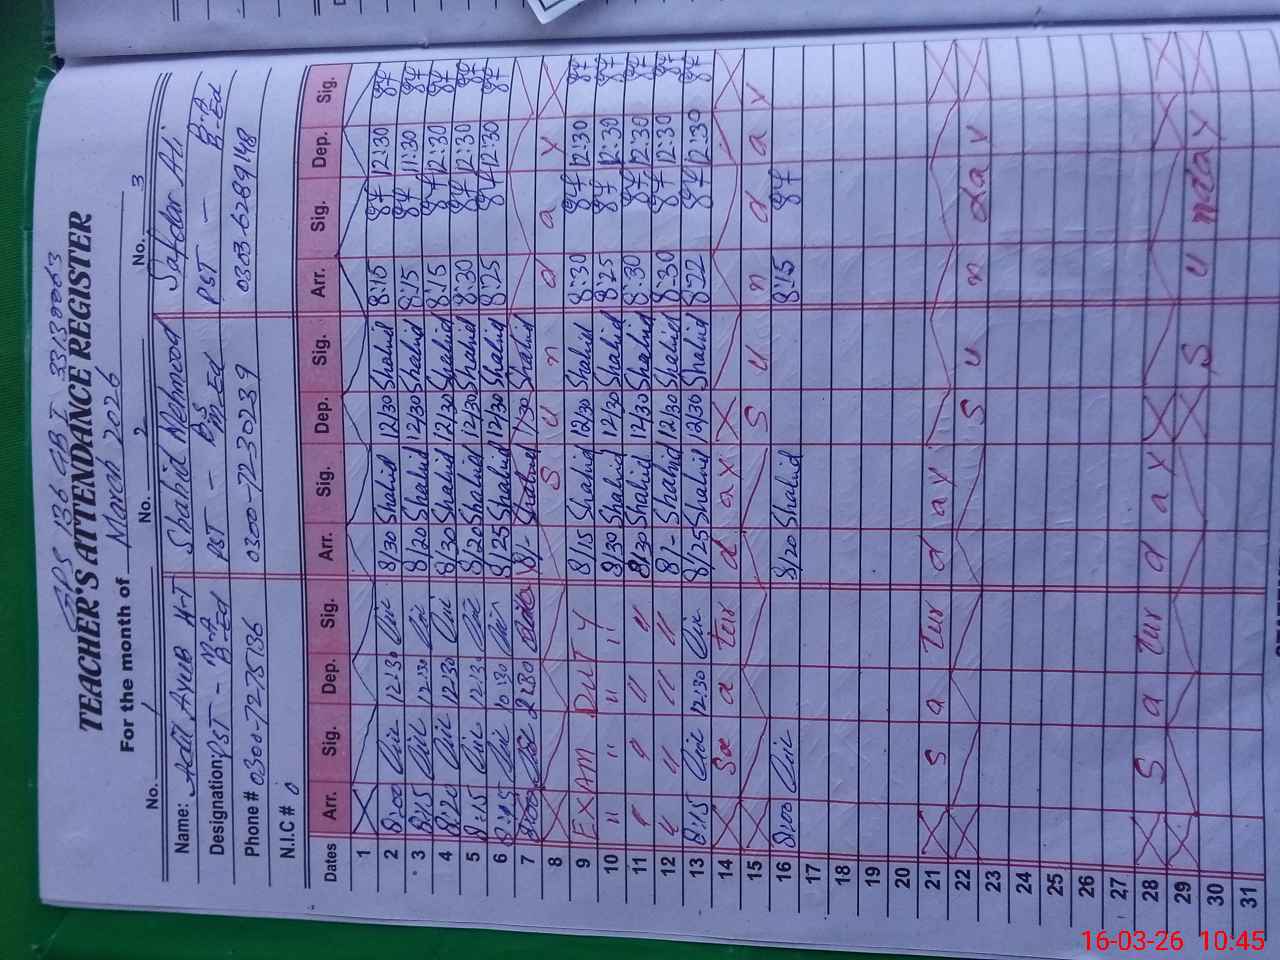 GPS 136 GB I 33130063
TEACHER'S ATTENDANCE REGISTER
For the month of March 2026
No. 1 No. 2 No. 3
Name: Adil Ayub H-T Shahid Mehmood Safdar Ali
Designation: PST - M-A B-Ed PST - BS M.Ed PST - B-A B-Ed
Phone # 0300-7275136 0300-7230239 0303-6289148
N.I.C #
Dates Arr. Sig. Dep. Sig. Arr. Sig. Dep. Sig. Arr. Sig. Dep. Sig.
1
2 8:00 12:30 8/30 Shahid 12/30 Shahid 8:15 12:30
3 8:15 12:30 8/20 Shahid 12/30 Shahid 8:15 11:30
4 8:20 12:30 8/30 Shahid 12/30 Shahid 8:15 12:30
5 8:15 12:30 8/20 Shahid 12/30 Shahid 8:30 12:30
6 8/25 Shahid 12/30 Shahid 8:25 12:30
7 8:00 8/- Shahid Shahid
8 S u n d a y
9 EXAM DUTY 8/15 Shahid 12/30 Shahid 8:30 12:30
10 " " " " 8/30 Shahid 12/30 Shahid 8:25 12:30
11 " " " " 8/30 Shahid 12/30 Shahid 8:30 12:30
12 " " " " 8/- Shahid 12/30 Shahid 8:30 12:30
13 8:15 12:30 8/25 Shahid 12/30 Shahid 8:22 12:30
14 Sa a tur d a y
15 S u n d a y
16 8:00 8/20 Shahid 8:15
17
18
19
20
21 S a tur d a y
22 S u n d a y
23
24
25
26
27
28 S a tur d a y
29 S u n d a y
30
31
16-03-26 10:45